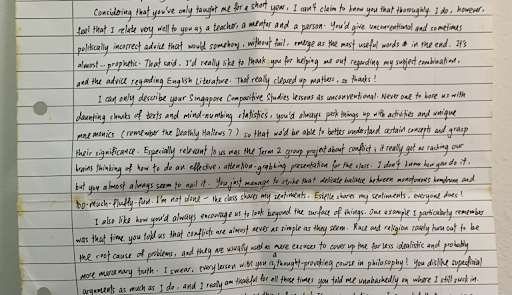 Considering that you've only taught me for a short year, I can't claim to know you that thoroughly. I do, however,
feel that I relate very well to you as a teacher, a mentor and a person. You'd give unconventional and sometimes
politically incorrect advice that would somehow, without fail, emerge as the most useful words in the end. It's
almost.. prophetic. That said, I'd really like to thank you for helping me out regarding my subject combination,
and the advice regarding English Literature. That really cleared up matters, so thanks!
I can only describe your Singapore Comparitive Studies lessons as unconventional. Never one to bore us with
daunting chunks of texts and mind-numbing statistics, you'd always perk things up with activities and unique
mnemonics (remember the Deathly Hallows?) so that we'd be able to better understand certain concepts and grasp
their significance. Especially relevant to us was the Term 2 group project about conflict, it really got us racking our
brains thinking of how to do an effective, attention-grabbing presentation for the class. I don't know how you do it,
but you almost always seem to nail it. You just manage to strike that delicate balance between monotonous humdrum and
too-much-fluffy-fun. I'm not done – the class shares my sentiments. Estelle shares my sentiments, everyone does!
I also like how you'd always encourage us to look beyond the surface of things. One example I particularly remember
was that time you told us that conflicts are almost never as simple as they seem. Race and religion rarely turn out to be
the root cause of problems, and they are usually used as mere excuses to cover up the far less idealistic and probably
more mercenary truth. I swear, every lesson with you is a thought-provoking course in philosophy! You dislike superficial
arguments as much as I do, and I really am thankful for all those times you told me unabashedly on where I still suck in.